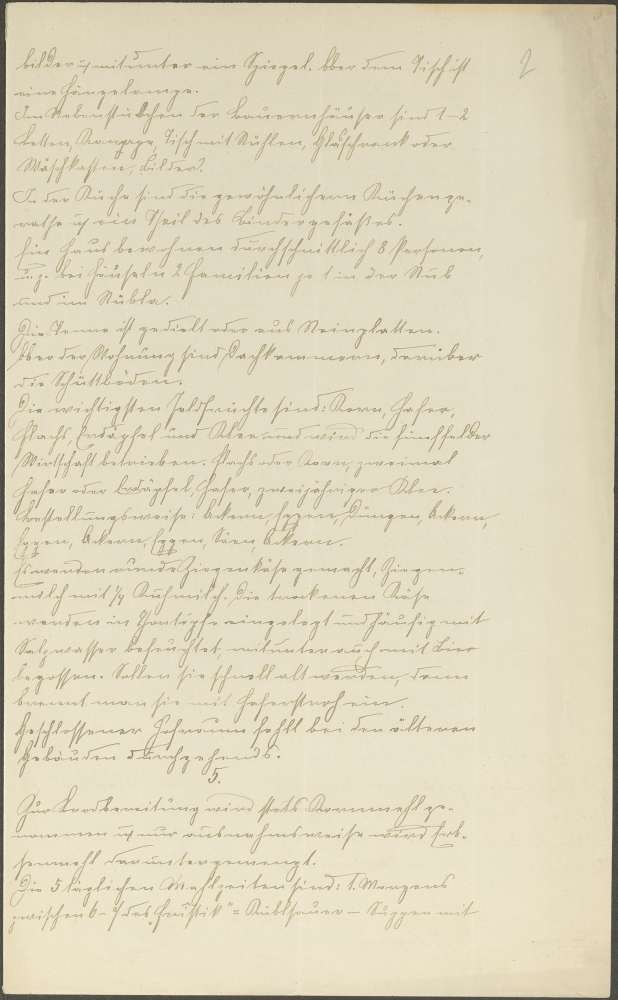 2
bilder u. mitunter ein Spiegel. Über dem Tisch ist
eine Hängelampe.
Im Nebenstübchen der Bauernhäuser sind 1–2
Betten, Tisch mit Stühlen, Glasschrank oder
Waschkasten, Bilder.
In der Küche sind die gewöhnlichen Küchenge-
räthe u. ein Theil des Bindergefäßes.
Ein Haus bewohnen durchschnittlich 8 Personen,
u. z. bei Häuseln 2 Familien je 1 in der Stub
und im Stübla.
Die Tenne ist gedielt oder aus Steinplatten.
Über der Wohnung sind Dachkammern, darüber
die Schüttböden.
Die wichtigsten Feldfrüchte sind: Korn, Hafer,
Flachs, Erdäpfel und Klee und wird die fünffelder
Wirtschaft betrieben. Flachs oder Korn, zweimal
Hafer oder Erdäpfel, Hafer, zweijähriger Klee.
Bestellungsweise: Ackern, Eggen, Düngen, Ackern,
Eggen, Ackern, Eggen, Säen, Ackern.
Es werden runde Ziegenkäse gemacht, Ziegen-
milch mit ¼ Kuhmilch. Die trockenen Käse
werden in Thontöpfe eingelegt und häufig mit
Salzwasser befeuchtet, mitunter auch mit Bier
begossen. Sollen sie schnell alt werden, dann
brennt man sie mit Haferstroh ein.
Geschlossener Hofraum fehlt bei den älteren
Gebäuden durchgehends.
5.
Zur Brodbereitung wird stets Kornmehl ge-
nommen u. nur ausnahmsweise wird Erb-
senmehl daruntergemengt.
Die 5 täglichen Mahlzeiten sind: 1. Morgens
zwischen 6–7 das „Frühstik" = – Suppen mit